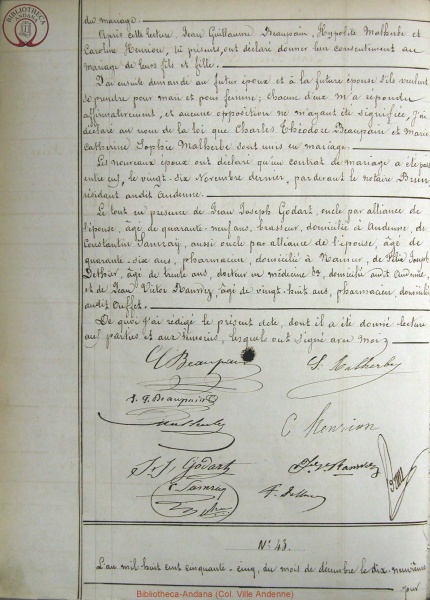 BIBLIOTHECA
ANDANA
du mariage.
Après cette lecture, Jean Guillaume Beaupain, Hypolite Malherbe et
Caroline Henrion, ici présents, ont déclaré donner leur consentement au
mariage de leurs fils et fille.
J'ai ensuite demandé au futur époux et à la future épouse s'ils veulent
se prendre pour mari et pour femme; chacun d'eux m'a répondu
affirmativement, et aucune opposition ne m'ayant été signifiée, j'ai
déclaré au nom de la loi que Charles Théodore Beaupain et Marie
Catherine Sophie Malherbe sont unis en mariage.
Les nouveaux époux ont déclaré qu'un contrat de mariage a été passé
entre eux, le vingt-six Novembre dernier, pardevant le notaire
résidant audit Andenne.
Le tout en présence de Jean Joseph Godart, oncle par alliance de
l'épouse, âgé de quarante-neuf ans, brasseur, domicilié à Andenne, de
Constantin Sanray, aussi oncle par alliance de l'épouse, âgé de
quarante-six ans, pharmacien, domicilié à Namur, de Félix Joseph
âgé de trente ans, docteur en médecine domicilié audit Andenne,
et de Jean Victor âgé de vingt-huit ans, pharmacien, domicilié
audit Ouffet.
De quoi j'ai rédigé le présent acte, dont il a été donné lecture
aux parties et aux témoins, lesquels ont signé avec moi
Beaupain
S. Malherbe
J. G. Beaupain
C Henrion
J. J. Godart
C. Sanray
N° 43.
L'an mil huit cent cinquante-cinq, du mois de décembre le dix-neuvième
jour
Bibliotheca-Andana (Col. Ville Andenne)